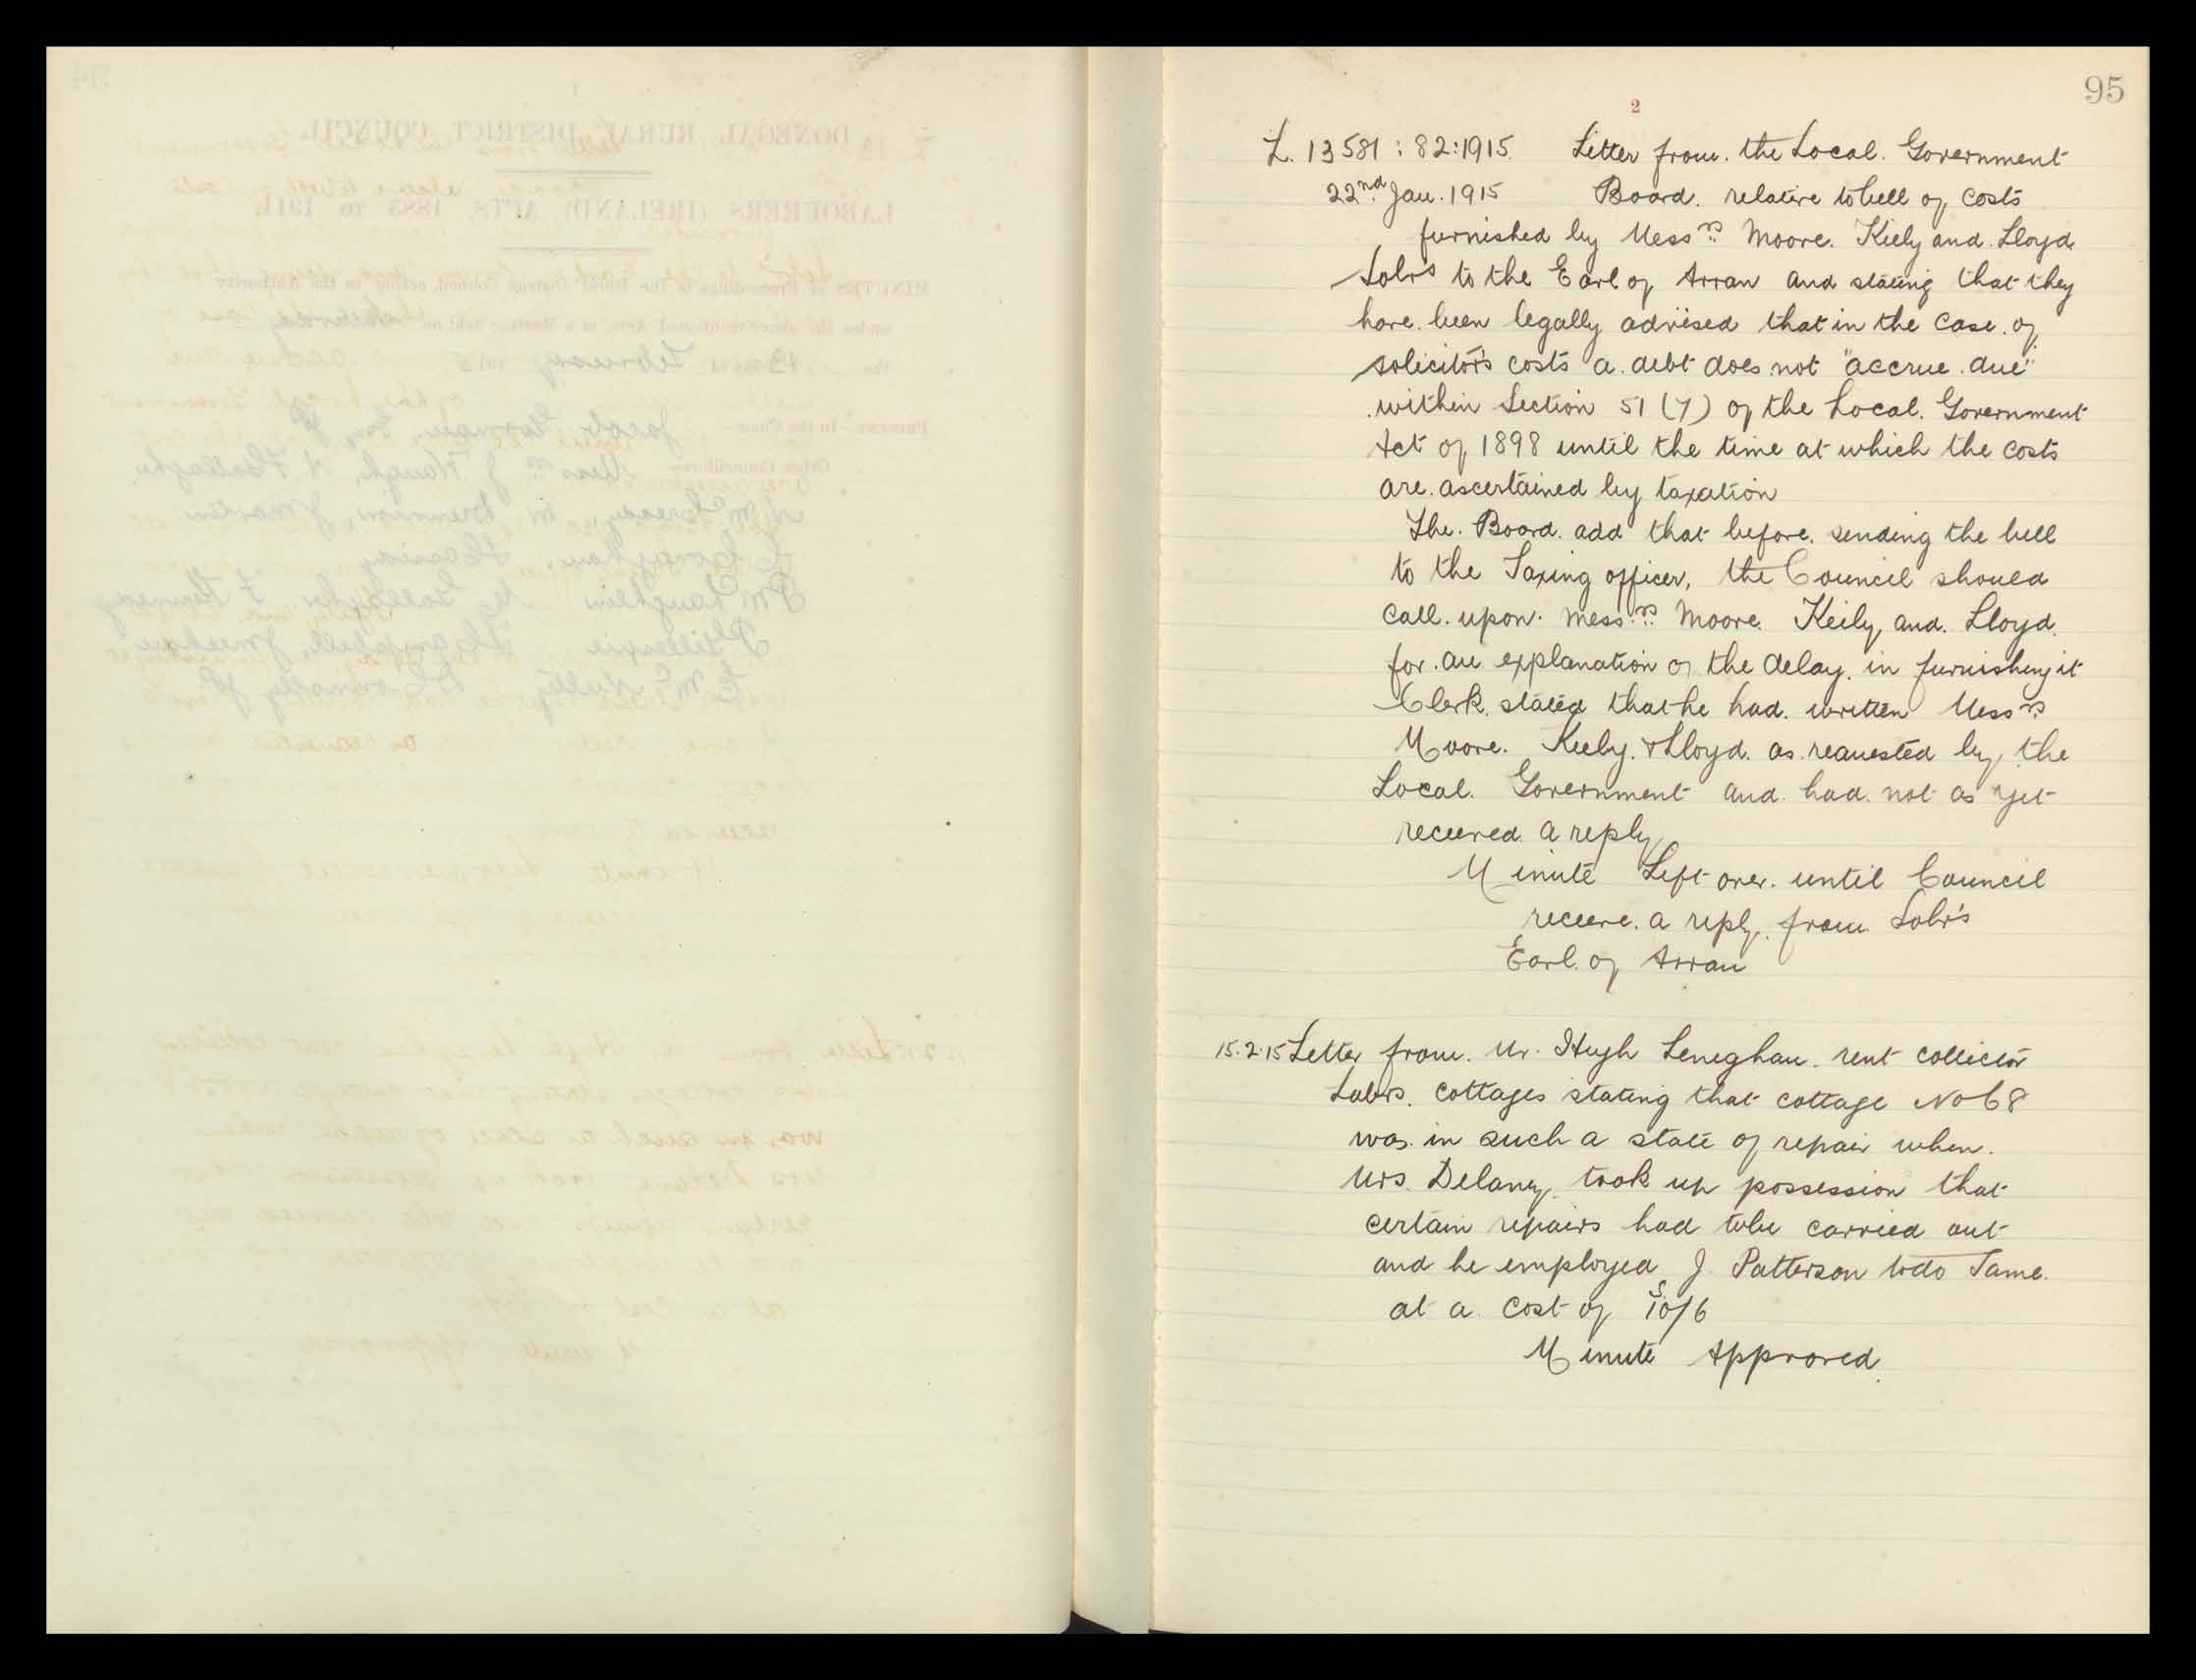 95
2
L. 13581 : 82:1915 Letter from. the Local. Government
22nd Jan. 1915 Board. relative to bill of costs
furnished by Messrs Moore. Kiely and. Lloyd
Solrs to the Earl of Arran and stating that they
have. been legally advised that in the case. of
solicitor's costs a. debt does not "accrue. due"
within Section 51 (7) of the Local. Government
Act of 1898 until the time at which the costs
are. ascertained by taxation
The. Board. add that before. sending the bill
to the Taxing officer, the Council should
call. upon. Messrs Moore. Keily, and. Lloyd.
for. an explanation of the delay. in furnishing it
Clerk. stated that he had. written Messrs
Moore. Kiely. & Lloyd. as. requested by, the
Local. Government and. had. not as yet
received. a reply
Minute Left over. until Council
receive. a reply. from Solr's
Earl. of Arran
15.2.15 Letter from. Mr. Hugh Leneghan. rent collector
Labrs. cottages stating that cottage No 68
was. in such a state of repair when.
Mrs. Delany. took up possession that
certain repairs had to be carried out
and he employed J. Patterson to do Same.
at a. cost of 10s/6
Minute Approved.